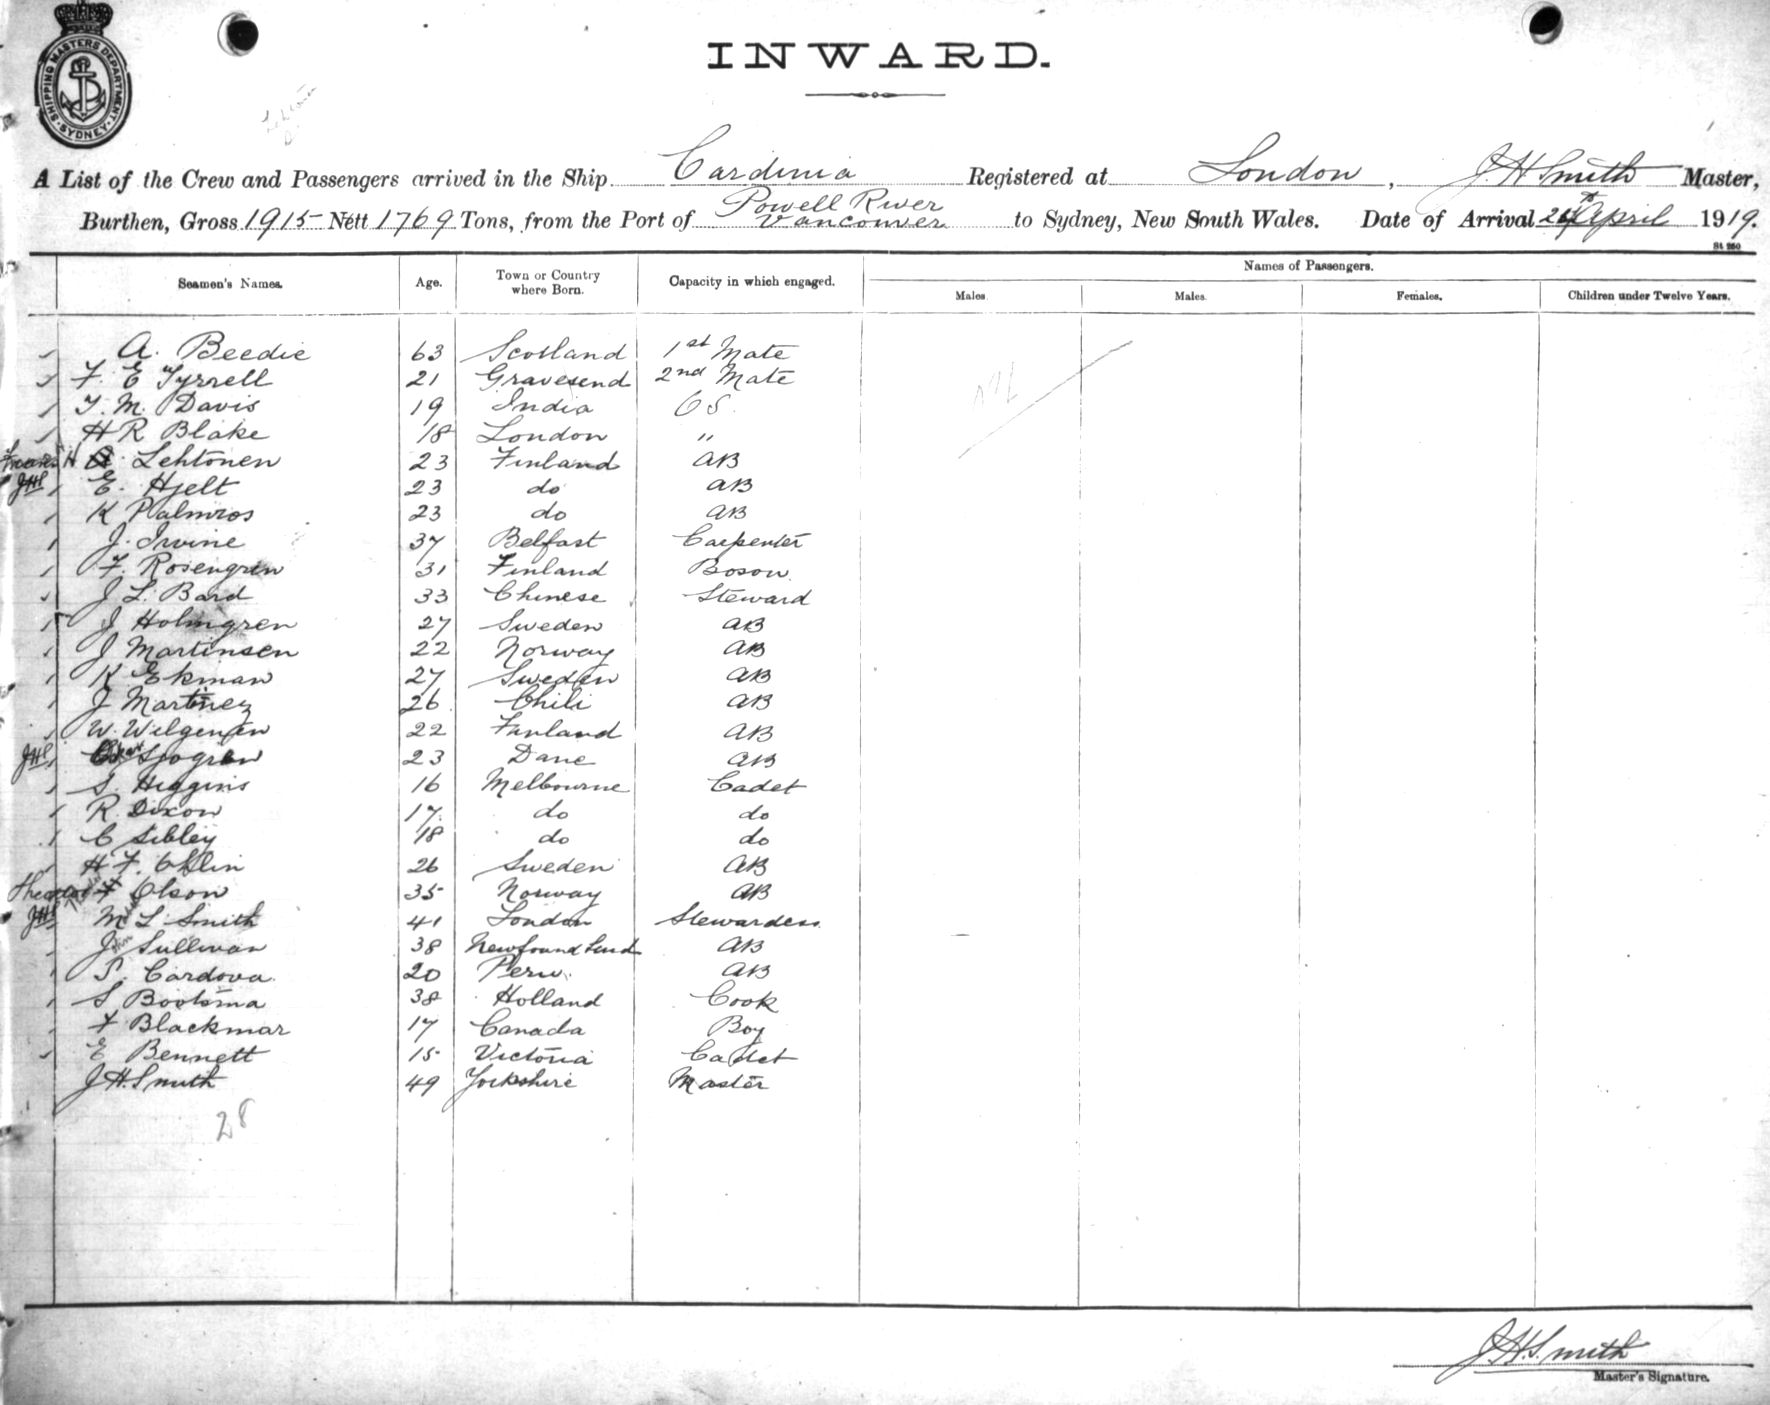 SHIPPING MASTERS DEPARTMENT
SYDNEY
INWARD.
A List of the Crew and Passengers arrived in the Ship Cardinia Registered at London, J.H Smith Master,
Burthen, Gross 1915 Nett 1769 Tons, from the Port of Powell River Vancouver to Sydney, New South Wales. Date of Arrival April 1919.
St 260
Seamen's Names. Age. Town or Country where Born. Capacity in which engaged. Names of Passengers.
Males. Males. Females. Children under Twelve Years.
A. Beedie 63 Scotland 1st Mate
F. E Tyrrell 21 Gravesend 2nd Mate
T. M. Davis 19 India OS.
H R Blake 18 London "
H Lehtonen 23 Finland AB
JHS E. Hjelt 23 do AB
K Palmros 23 do AB
J. Irvine 37 Belfast Carpenter
F. Rosengren 31 Finland Boson.
J L. Bard 33 Chinese Steward
J Holmgren 27 Sweden AB
J Martinsen 22 Norway AB
K Ekman 27 Sweden AB
J Martinez 26 Chili AB
W. Wilgenen 22 Finland AB
JHS Sjogren 23 Dane AB
S. Higgins 16 Melbourne Cadet
R. Dixon 17. do do
C Sibley 18 do do
H F. Ohlin 26 Sweden AB
Olson 35 Norway AB
JHS M L Smith 41 London Stewardess.
J Sullivan 38 Newfoundland AB
P. Cardova. 20 Peru. AB
S Bootsma 38 Holland Cook
F Blackmar 17 Canada Boy
E Bennett 15 Victoria Cadet
J.H. Smith 49 Yorkshire Master
28
J.H. Smith
Master's Signature.